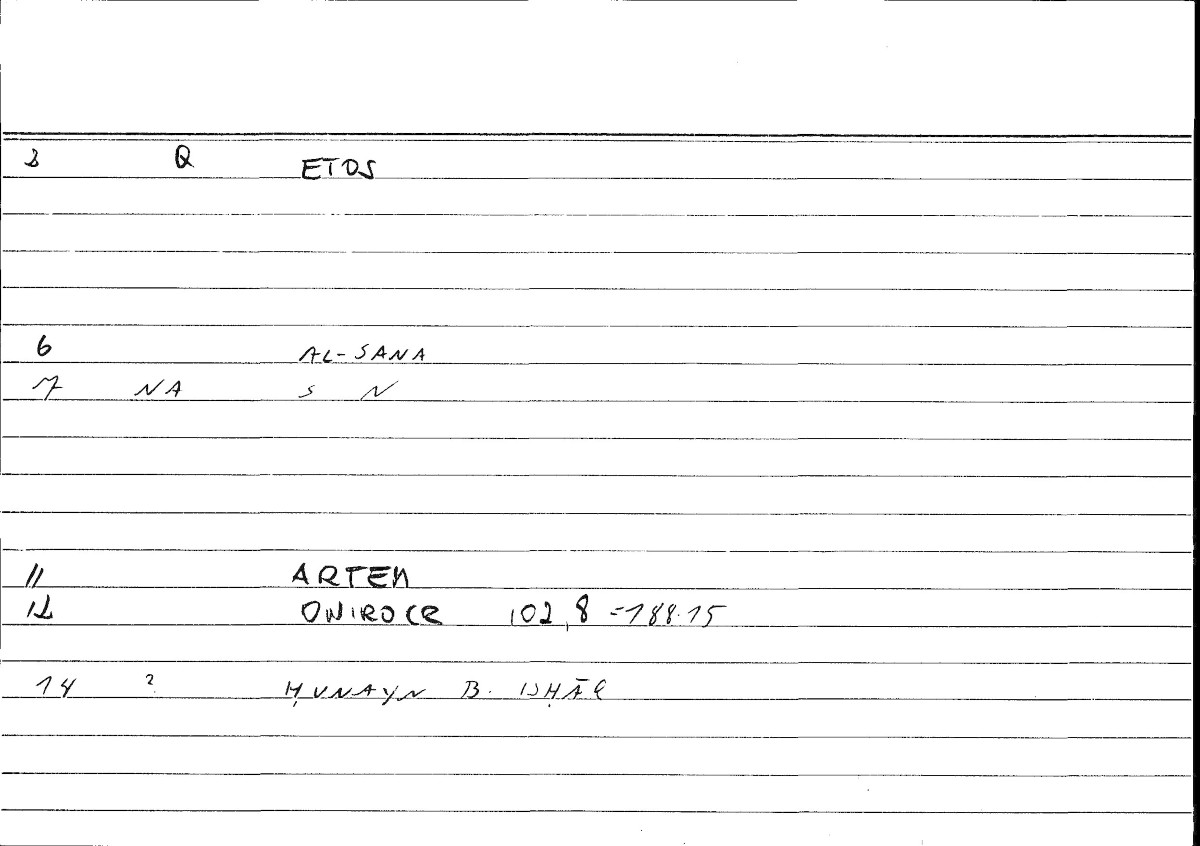 3 Q ETOS
6 AL-SANA
7 NA S N
11 ARTEM
12 ONIROCR 102,8 =188.15
14 ? ḤUNAYN B. ISḤĀQ